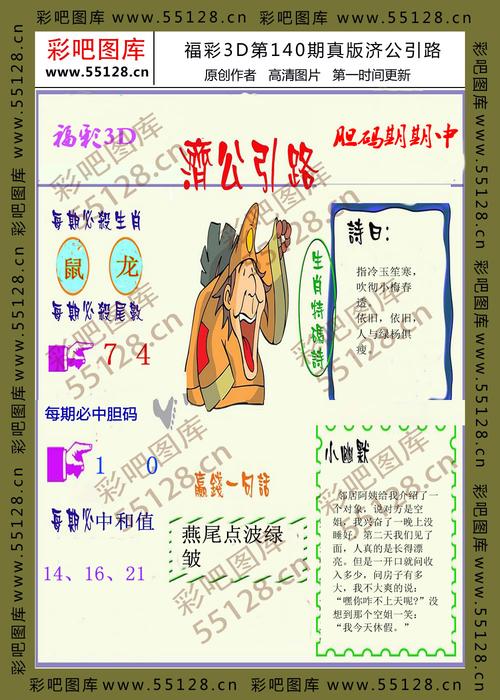 彩吧图库 www.55128.cn 彩吧图库 www.55128.cn 彩吧图库
彩吧图库
www.55128.cn
福彩3D第140期真版济公引路
原创作者 高清图片 第一时间更新
福彩3D
濟公引路
胆码期期中
每期必殺生肖
鼠 龙
每期必殺尾数
7 4
每期必中胆码
1 0
每期必中和值
14、16、21
生肖特碼詩
詩曰:
指冷玉笙寒,
吹彻小梅春
透。
依旧,依旧,
人与绿杨俱
瘦。
赢錢一句話
燕尾点波绿
皱
小幽默
邻居阿姨给我介绍了一
个对象,说对方是空
姐,我兴奋了一晚上没
睡好。第二天我们见了
面,人真的是长得漂
亮。但是一开口就问收
入多少,问房子有多
大,我不大爽的说:
“嘿你咋不上天呢?”没
想到那个空姐一笑:
“我今天休假。”
彩吧图库
55128.cn
彩吧图库 www.55128.cn 彩吧图库 www.55128.cn